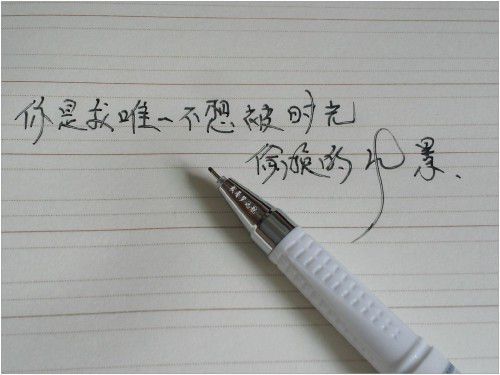 你是我唯一不想被时光
偷换的风景.